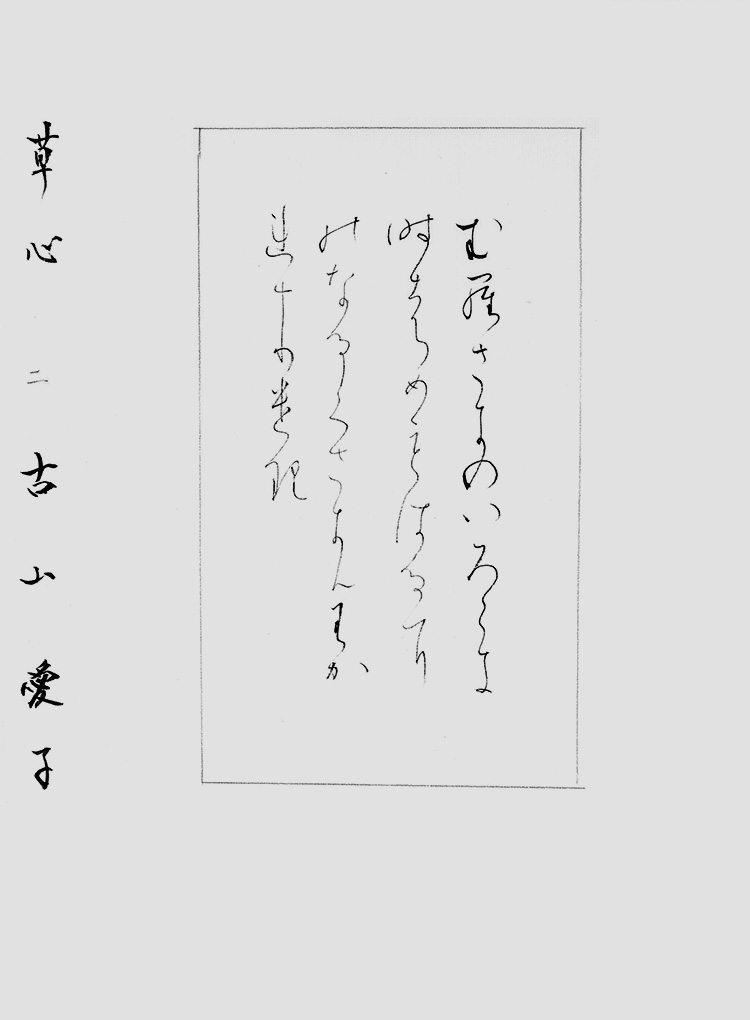 む羅さきのいろこき
時はめもはるに
のなるくさきそわか
連
草心 二 古山愛子